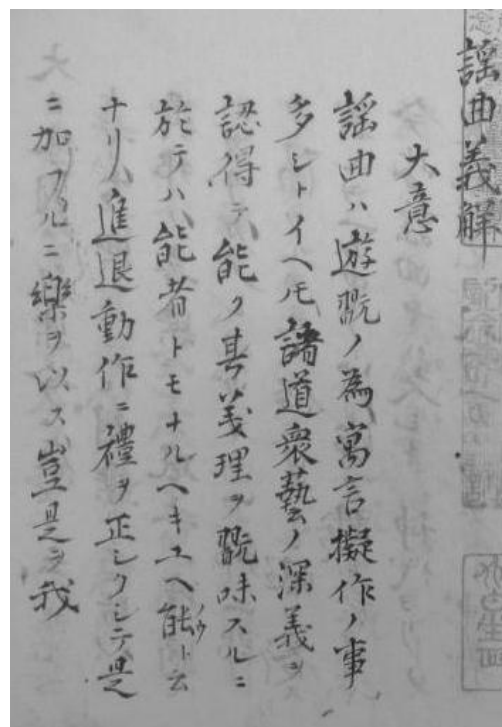 謡曲義解
大意
謡曲ハ遊翫ノ為寓言擬作ノ事
多シトイヘモ諸道衆藝ノ深義ヲ
認得テ能ク其義理ヲ翫味スルニ
於テハ能者トモナルヘキユヘ能ノウト云
ナリ人進退動作ニ禮ヲ正シクシテ是
ニ加フルニ樂ヲ以ス豈是ヲ我